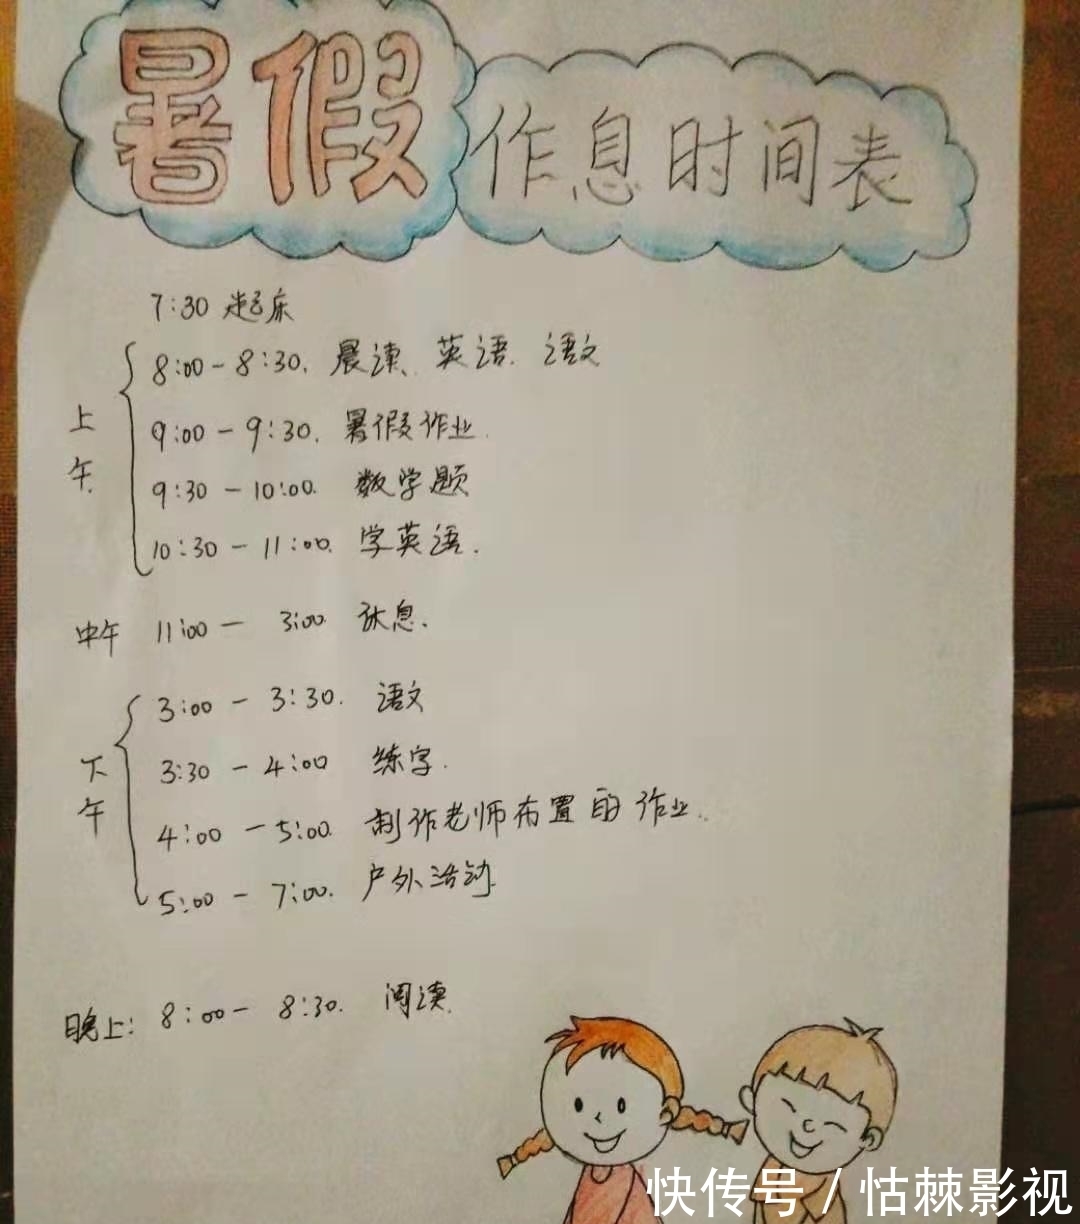 暑假作息时间表
7:30 起床
上午
8:00-8:30. 晨读、英语. 语文
9:00-9:30. 暑假作业.
9:30-10:00. 数学题
10:30-11:00. 学英语.
中午 11:00- 3:00 休息.
下午
3:00-3:30. 语文
3:30-4:00 练字.
4:00-5:00. 制作老师布置的作业.
5:00-7:00. 户外活动.
晚上: 8:00-8:30. 阅读.
快传号 / 怙棘影视